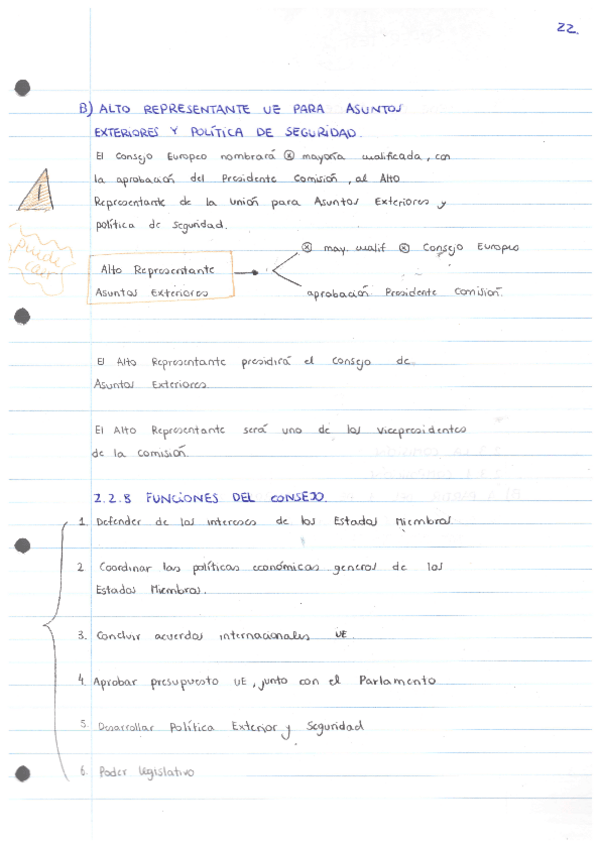 22.
B) ALTO REPRESENTANTE UE PARA ASUNTOS
EXTERIORES Y POLÍTICA DE SEGURIDAD.
El Consejo Europeo nombrará ⊗ mayoría cualificada, con
la aprobación del Presidente Comisión, al Alto
Representante de la Unión para Asuntos Exteriores y
política de Seguridad.
!
puede
caer
Alto Representante
Asuntos Exteriores
⊗ may. cualif ⊗ Consejo Europeo
aprobación Presidente Comisión.
El Alto Representante presidirá el Consejo de
Asuntos Exteriores.
El Alto Representante será uno de los vicepresidentes
de la Comisión.
2.2.8 FUNCIONES DEL CONSEJO.
1. Defender de los intereses de los Estados Miembros
2 Coordinar las políticas económicas general de los
Estados Miembros.
3. Concluir acuerdos internacionales UE.
4. Aprobar presupuesto UE, junto con el Parlamento
5. Desarrollar Política Exterior y Seguridad
6. Poder legislativo